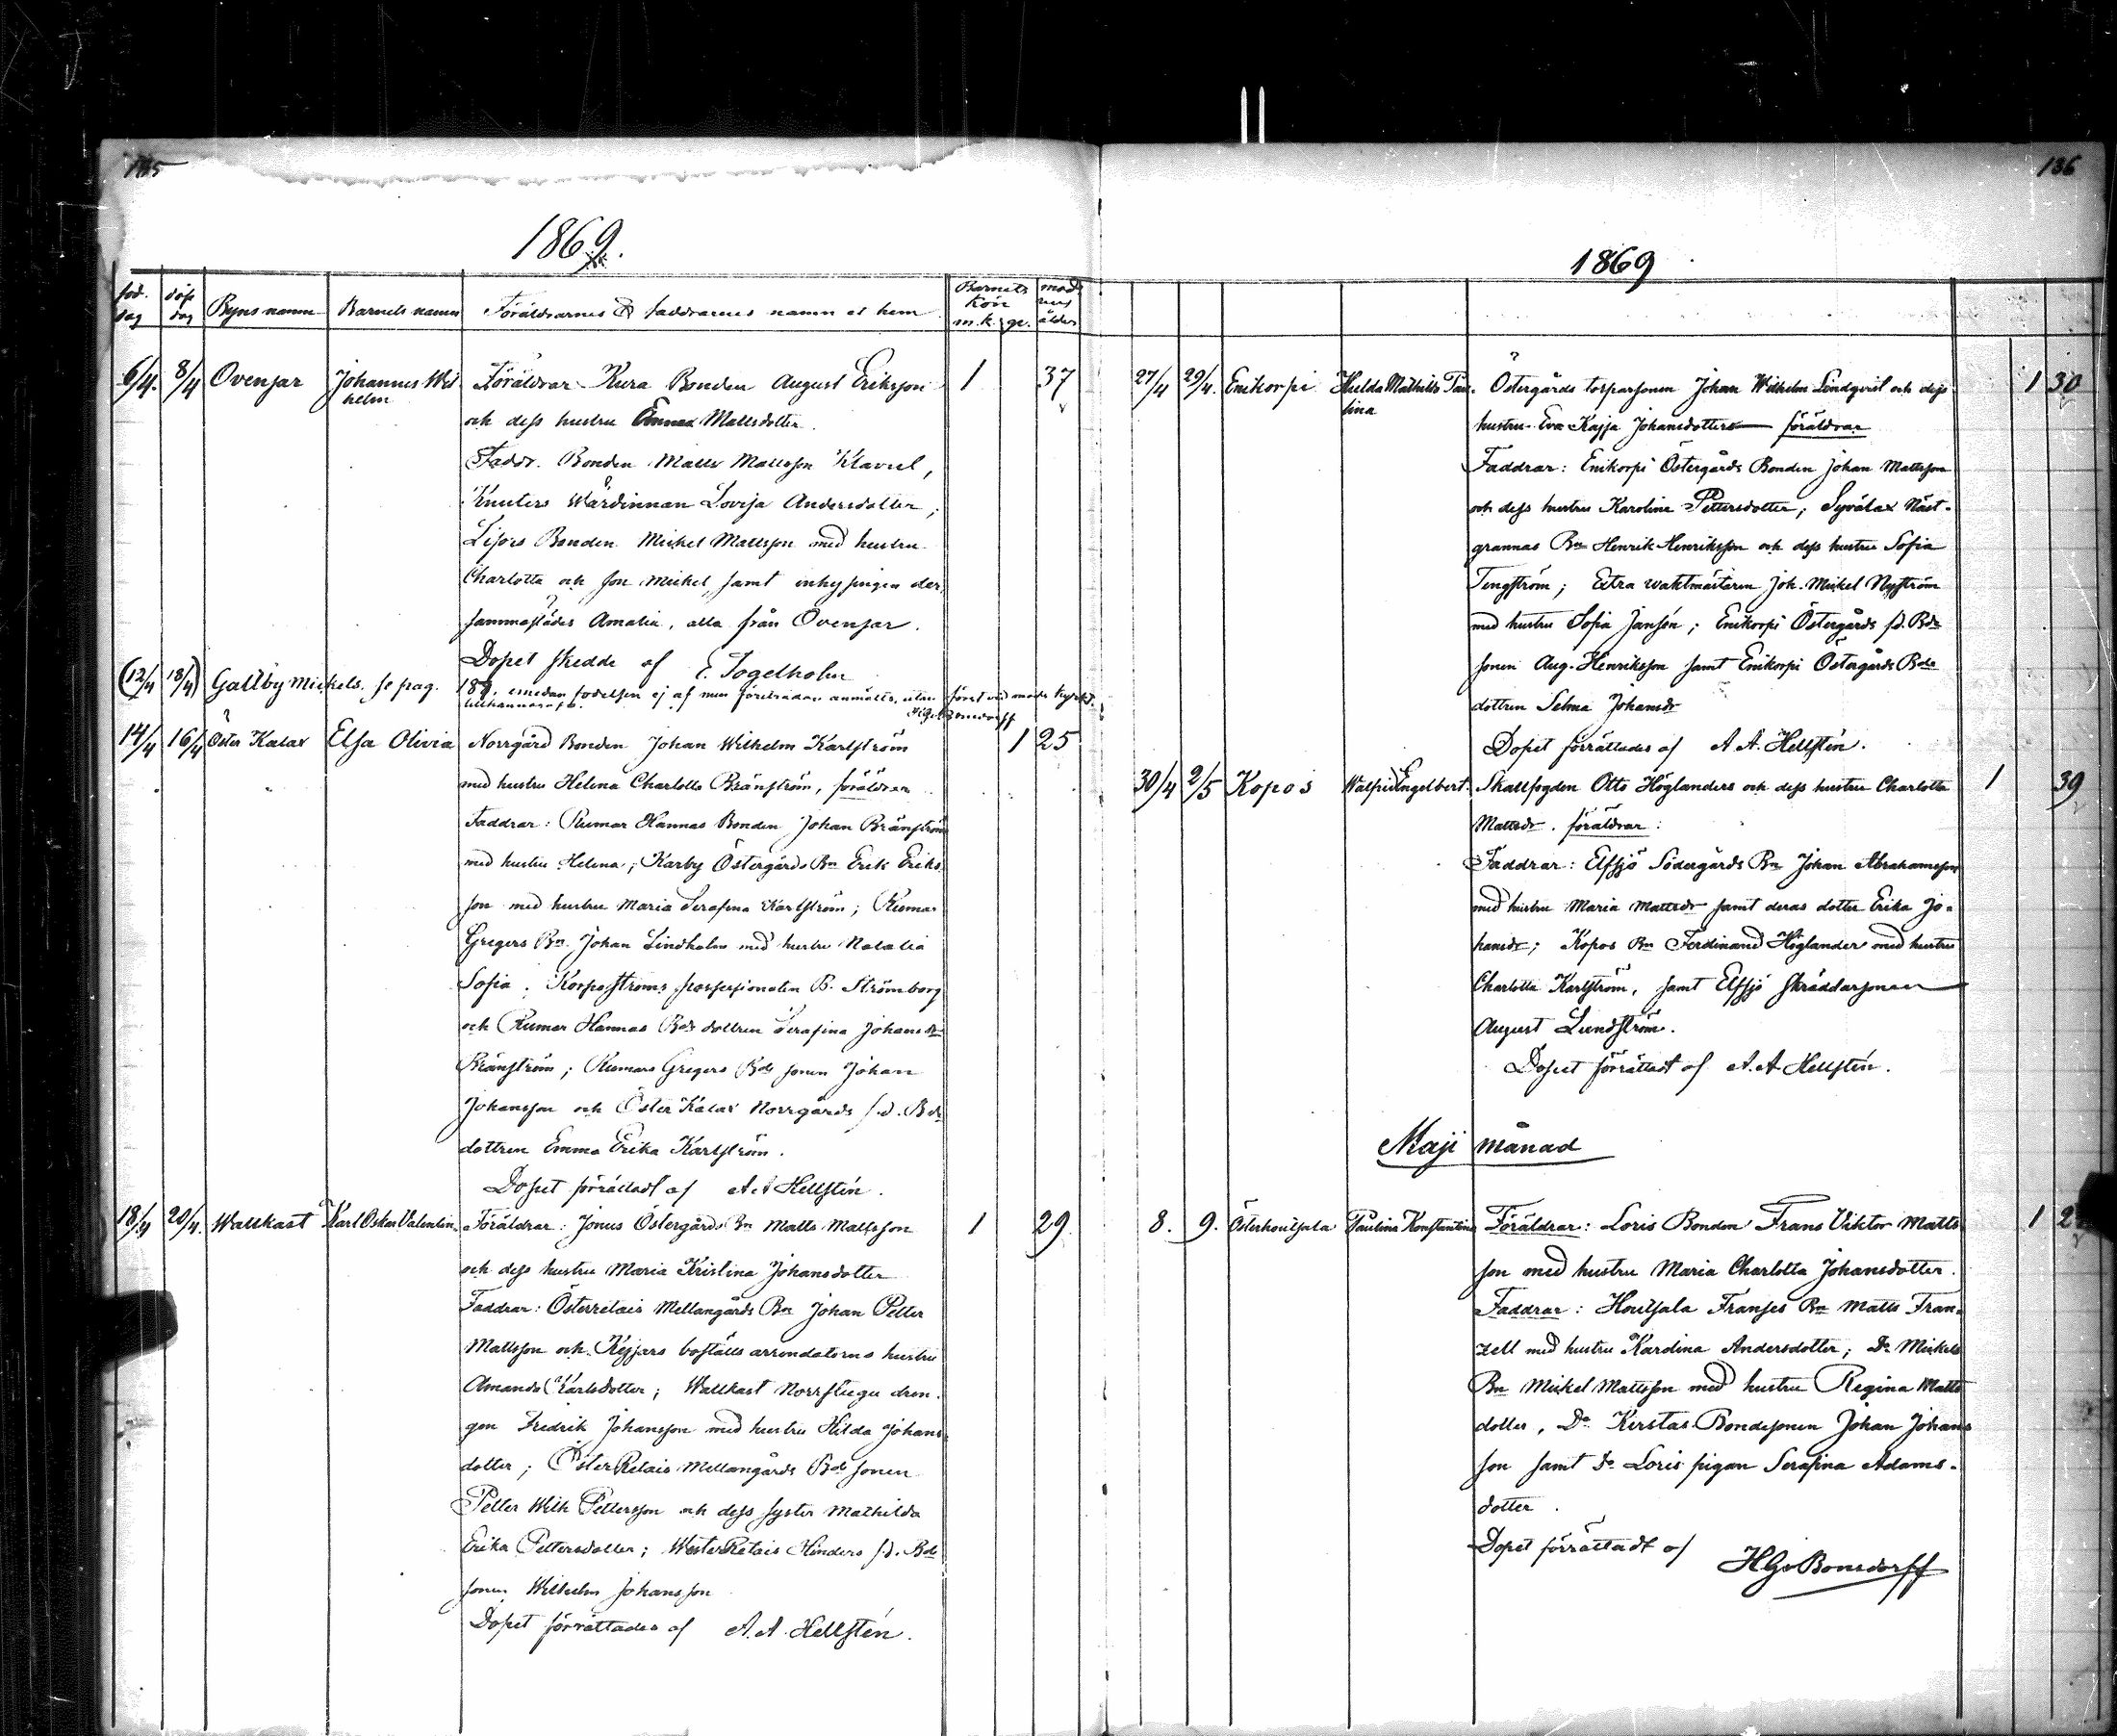 135
1869.
föd. dag döp dag Byns namn Barnets namn Föräldrarnes & faddrarnes namn et hem Barnets kön m.k. qv. modrens ålder
6/4. 8/4 Ovensar Johannes Wil Föräldrar Kura Bonden August Eriksson 1 37
helm och dess hustru Anna Mattsdotter.
Faddr. Bonden Matts Mattsson Klavul,
Knuters Wärdinnan Lovisa Andersdotter,
Lisors Bonden Mickel Mattsson med hustru
Charlotta och son Mickel, samt inhysingen der
sammastädes Amalia, alla från Ovensar.
Dopet skedde af E. Fogelholm
(12/4 18/4) Galtby Mickels. se pag. 187. emedan födelsen ej af min företrädare anmälts, utan först vid moders kyrkt.
14/4 16/4 Öster Kalax Elsa Olivia Norrgård Bonden Johan Wilhelm Karlström 1 25
med hustru Helena Charlotta Bränström, föräldrar
Faddrar: Rumar Hannas Bonden Johan Bränström
med hustru Helena; Karby Östergårds Bn Erik Eriks
son med hustru Maria Serafina Karlström; Rumar
Gregers Bn Johan Lindholm med hustru Natalia
Sofia. Korpoströms possessionaten B. Strömborg
och Rumar Hannas Bds dottren Serafina Johansdr
Bränström; Rumars Gregers Bde sonen Johan
Johansson och Öster Kalax Norrgårds f.d. Bde
dottren Emma Erika Karlström.
Dopet förrättadt af A.A Hellstén.
18/4 20/4. Wattkast Karl Oskar Valentin. Föräldrar: Jonus Östergårds Bn Matts Mattsson 1 29.
och dess hustru Maria Kristina Johansdotter
Faddrar: Österretais Mellangårds Bn Johan Petter
Mattsson och Keyjars boställs arrendatorns hustru
Amanda Karlsdotter; Wattkast Norrstugu drän-
gen Fredrik Johansson med hustru Hilda Johans
dotter; Öster Retais Mellangårds Bde sonen
Petter Wilh Pettersson och dess syster Mathilda
Erika Pettersdotter; Wester Retais Hinders f.d. Bde
sonen Wilhelm Johansson
Dopet förrättades af A.A. Hellstén.
136
1869
27/4 29/4. Enikorpi Hulda Mathilda Pau- Östergårds torparsonen Johan Wilhelm Lindqvist och dess 1 30
lina hustru Eva Kajsa Johansdotter föräldrar
Faddrar: Enikorpi Östergårds Bonden Johan Mattsson
och dess hustru Karolina Pettersdotter; Syvälax Näst-
grannas Bn Henrik Henriksson och dess hustru Sofia
Tengström; Extra waktmästaren Joh. Mickel Nyström
med hustru Sofia Jansén; Enikorpi Östergårds f.d. Bde
sonen Aug. Henriksson samt Enikorpi Östergårds Bde
dottren Selma Johansdr
Dopet förrättades af A A. Hellstén.
30/4 2/5 Kopos Walfrid Engelbert. Skallfogden Otto Höglanders och dess hustru Charlotta 1 39
Mattsdr. föräldrar:
Faddrar: Elfsjö Södergårds Bn Johan Abrahamsson
med hustru Maria Mattsdr samt deras dotter Erika Jo-
hansdr; Kopos Bn Ferdinand Höglander med hustru
Charlotta Karlström, samt Elfsjö Skräddarsonen
August Lundström.
Dopet förrättadt af A.A Hellstén.
Maji månad
8. 9. Österhoutsala Paulina Konstantina Föräldrar: Loris Bonden Frans Viktor Matts 1 2
son med hustru Maria Charlotta Johansdotter.
Faddrar: Houtsala Franses Bn Matts Fran-
zell med hustru Karolina Andersdotter; Do Mickels
Bn Mickel Mattsson med hustru Regina Matts
dotter, Do Kerstas Bondesonen Johan Johans
son samt Do Loris pigan Serafina Adams-
dotter.
Dopet förrättadt af HGvBonsdorff